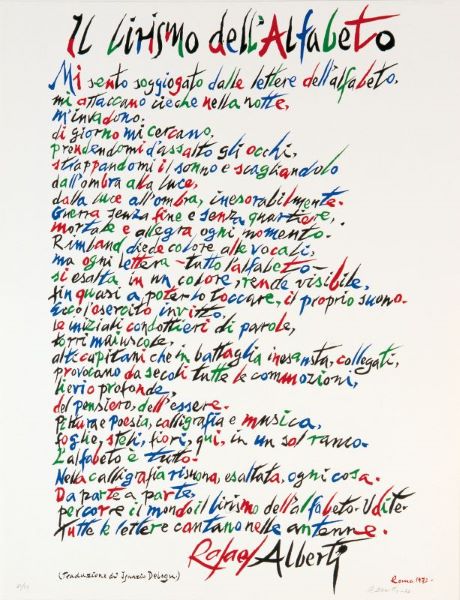 Il lirismo dell'Alfabeto
Mi sento soggiogato dalle lettere dell'alfabeto.
mi attaccano cieche nella notte,
m'invadono.
di giorno mi cercano.
prendendomi d'assalto gli occhi,
strappandomi il sonno e scagliandolo
dall'ombra alla luce,
dalla luce all'ombra, inesorabilmente.
Guerra senza fine e senza quartiere,
mortale e allegra ogni momento.
Rimbaud diede colore alle vocali,
ma ogni lettera - tutto l'alfabeto -
si esalta in un colore, rende visibile,
fin quasi a poterlo toccare, il proprio suono.
Ecco l'esercito invitto,
le iniziali condottieri di parole,
torri maiuscole,
alti capitani che in battaglia inesausta, collegati,
provocano da secoli tutte le commozioni,
lievi o profonde,
del pensiero, dell'essere.
Pittura e poesia, calligrafia e musica,
foglie, steli, fiori, qui, in un sol ramo.
L'alfabeto è tutto.
Nella calligrafia risuona, esaltata, ogni cosa.
Da parte a parte,
percorre il mondo il lirismo dell'alfabeto. Udite.
Tutte le lettere cantano nelle antenne.
Rafael Alberti
(Traduzione di Ignazio Delogu)
Roma 1972.